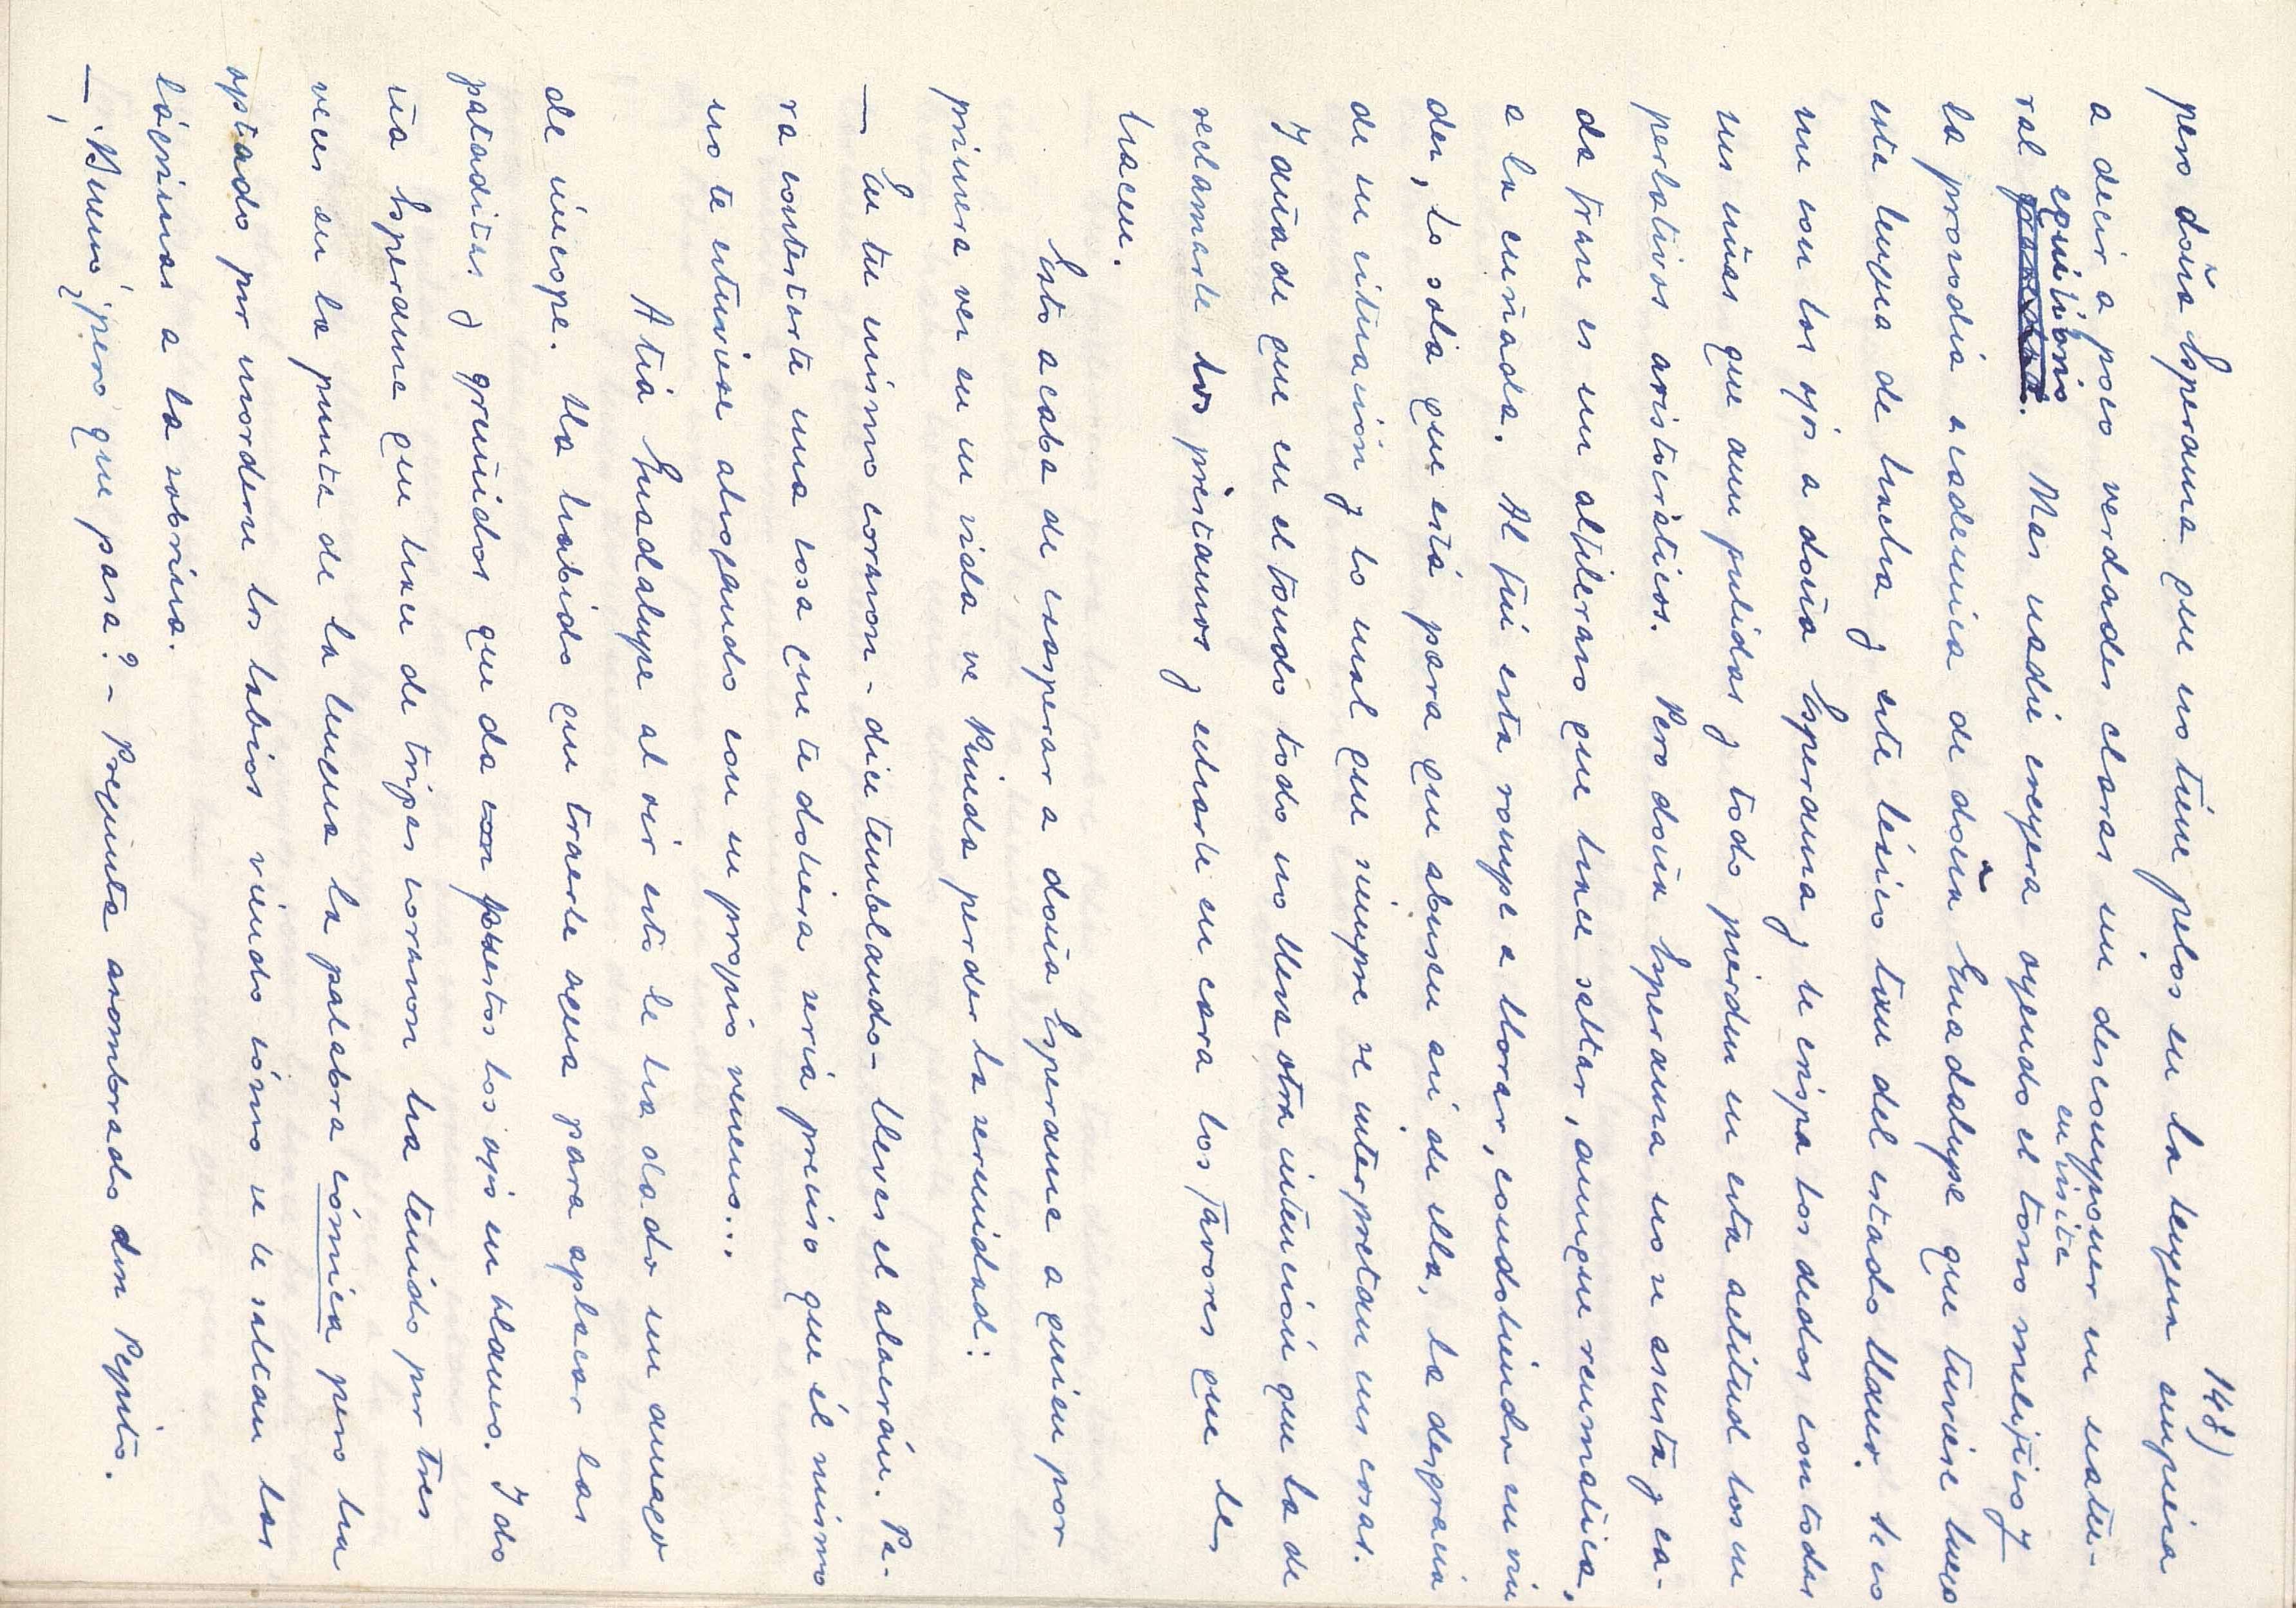 148)
pero doña Esperanza que no tiene pelos en la lengua empieza
a decir a poco verdades claras sin descomponer su natu-
ral equilibrio. Mas nadie creyera oyendo el tono melifluo y
en visita
la prosodia académica de doña Guadalupe que tuviese luego
esta lengua de hacha y este léxico tan del estado llano. Se co
me con los ojos a doña Esperanza y le crispa los dedos con todas
sus uñas que aun pulidas y todo pierden en esta actitud los su
perlativos aristocráticos. Pero doña Esperanza no se asusta y ca-
da frase es un alfilerazo que hace saltar, aunque reumática,
a la cuñada. Al fin esta rompe a llorar, condoliéndose en viu
dez, lo sola que está para que abusen así de ella, la desgracia
de su situación y lo mal que siempre se interpretan sus cosas.
Y añade que en el fondo todo no lleva otra intención que la de
reclamarle los préstamos y echarle en cara los favores que les
hacen.
Esto acaba de exasperar a doña Esperanza a quien por
primera vez en su vida ve Pinda perder la serenidad:
— En tu mismo corazón - dice temblando - llevas el alacrán. Pa-
ra contestarte una cosa que te doliera sería preciso que él mismo
no te estuviese ahogando con su propio veneno...
A tía Guadalupe al oir esto le ha dado un amago
de síncope. Ha habido que traerle agua para aplacar las
pataditas y gruñidos que da con puestos los ojos en blanco. Y do
ña Esperanza que hace de tripas corazón ha tenido por tres
veces en la punta de la lengua la palabra cómica pero ha
optado por morderse los labios viendo cómo se le saltan las
lágrimas a la sobrina.
— ¡Bueno, ¿pero que pasa? - Pregunta asombrado don Pepito.